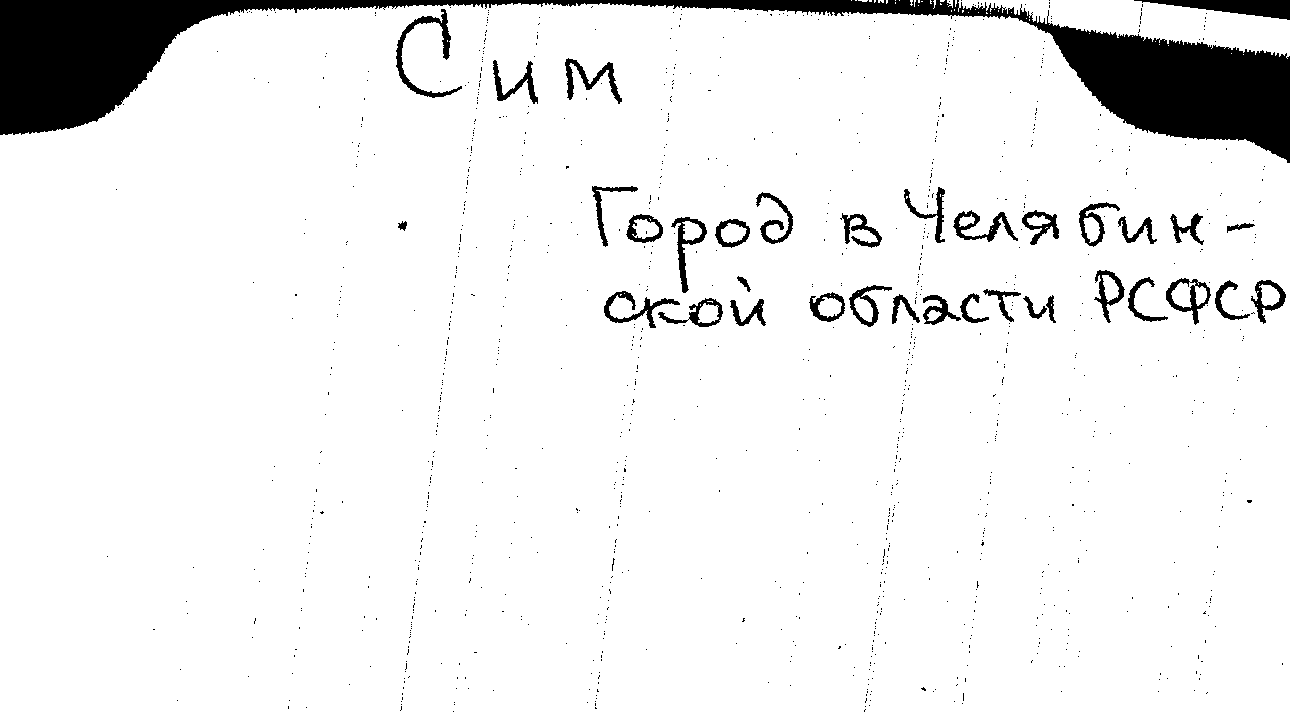 Сим
Город в Челябин-
ской области РСФСР